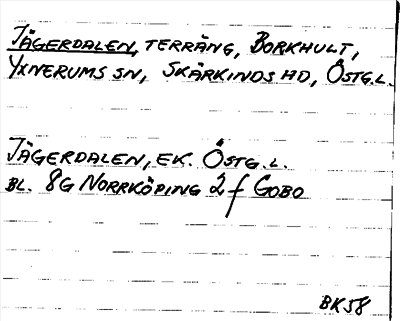 JÄGERDALEN, TERRÄNG, BORKHULT,
YXNERUMS SN, SKÄRKINDS HD, ÖSTG.L.
JÄGERDALEN, EK. ÖSTG.L.
BL. 8G NORRKÖPING 2f GOBO
BK58